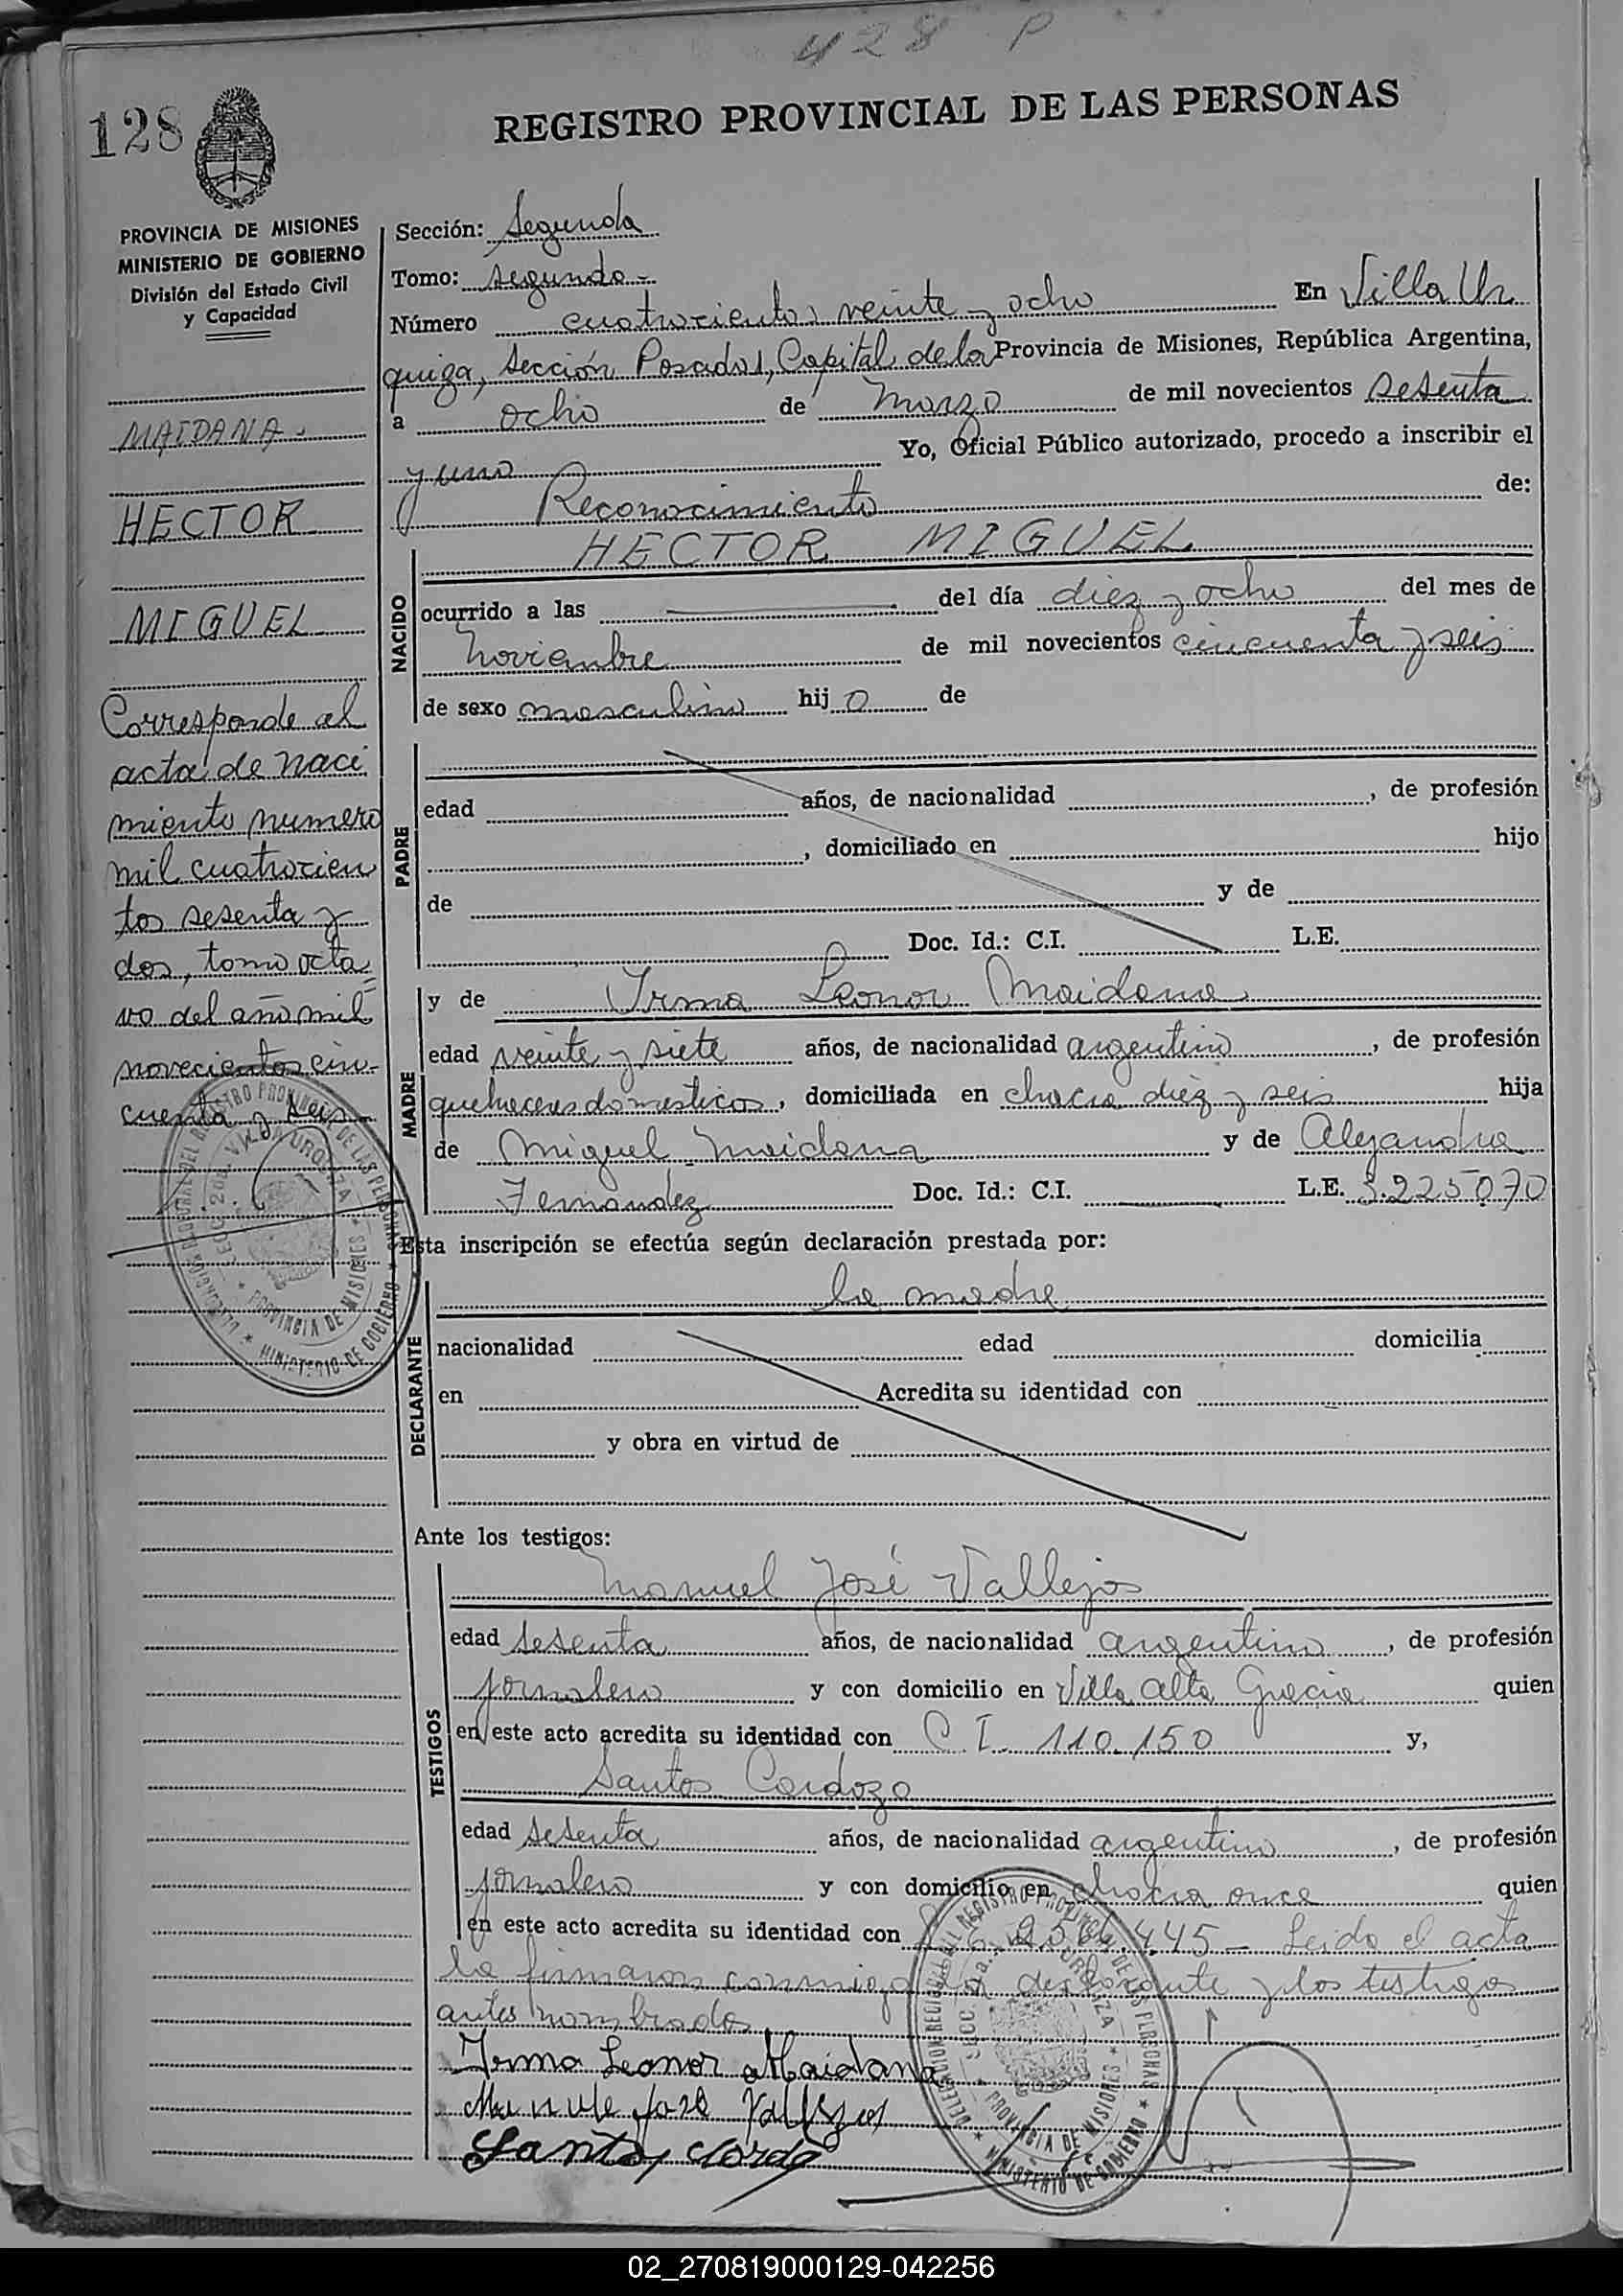 428 P
128
REGISTRO PROVINCIAL DE LAS PERSONAS
PROVINCIA DE MISIONES
MINISTERIO DE GOBIERNO
División del Estado Civil
y Capacidad
MAIDANA
HECTOR
MIGUEL
Corresponde al
acta de naci
miento numero
mil cuatrocien
tos sesenta y
dos, tomo octa
vo del año mil
novecientos cin-
cuenta y seis
Sección: Segunda
Tomo: segundo-
Número cuatrocientos veinte y ocho En Villa Ur
quiza, Sección Posadas, Capital de la Provincia de Misiones, República Argentina,
a ocho de Marzo de mil novecientos sesenta
y uno Yo, Oficial Público autorizado, procedo a inscribir el
Reconocimiento de:
HECTOR MIGUEL
NACIDO
ocurrido a las del día diez y ocho del mes de
Noviembre de mil novecientos cincuenta y seis
de sexo masculino hijo de
PADRE
edad años, de nacionalidad , de profesión
, domiciliado en hijo
de y de
Doc. Id.: C.I. L.E.
MADRE
y de Irma Leonor Maidana
edad veinte y siete años, de nacionalidad argentina, de profesión
quehaceres domesticos, domiciliada en chacra diez y seis hija
de Miguel Maidana y de Alejandra
Fernandez Doc. Id.: C.I. L.E. 3.225070
Esta inscripción se efectúa según declaración prestada por:
DECLARANTE
la madre
nacionalidad edad domicilia
en Acredita su identidad con
y obra en virtud de
Ante los testigos:
TESTIGOS
Manuel José Vallejos
edad sesenta años, de nacionalidad argentino, de profesión
jornalero y con domicilio en Villa Alta Gracia quien
en este acto acredita su identidad con C. I. 110.150 y,
Santos Cardozo
edad sesenta años, de nacionalidad argentino, de profesión
jornalero y con domicilio en chacra once quien
en este acto acredita su identidad con 445- Leido el acta
la firmaron conmigo la declarante y los testigos
antes nombrados
Irma Leonor Maidana
José Vallejos
02_270819000129-042256